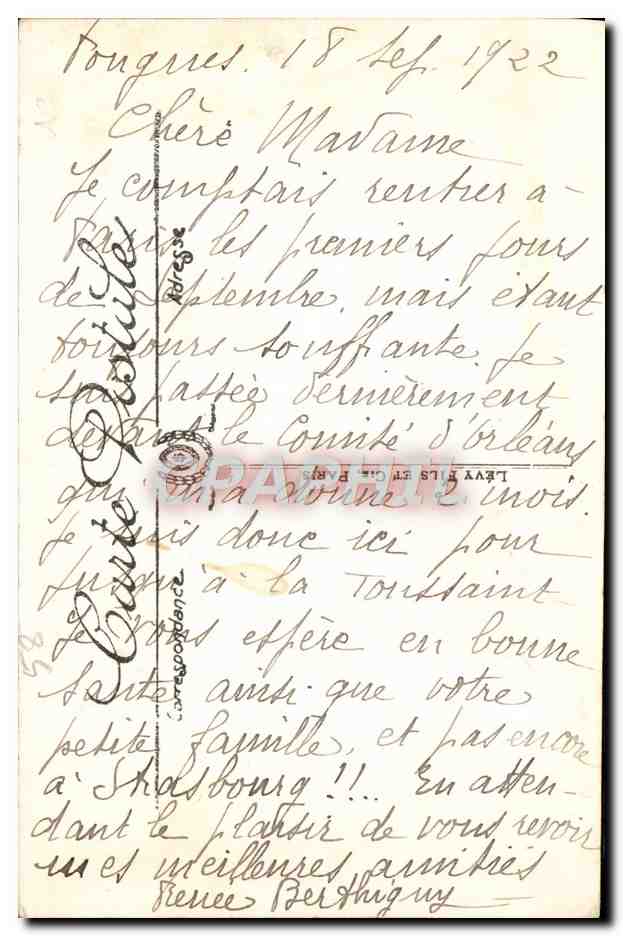 Pougues. 18 Sep. 1922
Chère Madame
Je comptais rentrer à
Paris les premiers jours
de Septembre, mais étant
toujours souffante. Je
suis passée dernièrement
devant le Comité d'Orléans
qui m'a donné 2 mois.
Je suis donc ici pour
jusqu'à la Toussaint
Je vous espère en bonne
santé ainsi que votre
petite famille, et pas encore
à Strasbourg!!.. En atten-
dant le plaisir de vous revoir
mes meilleures amitiés
Renée Berthiguy
Carte Postale
Correspondance
Adresse
LÉVY FILS ET CIE, PARIS
58
CPARHIL